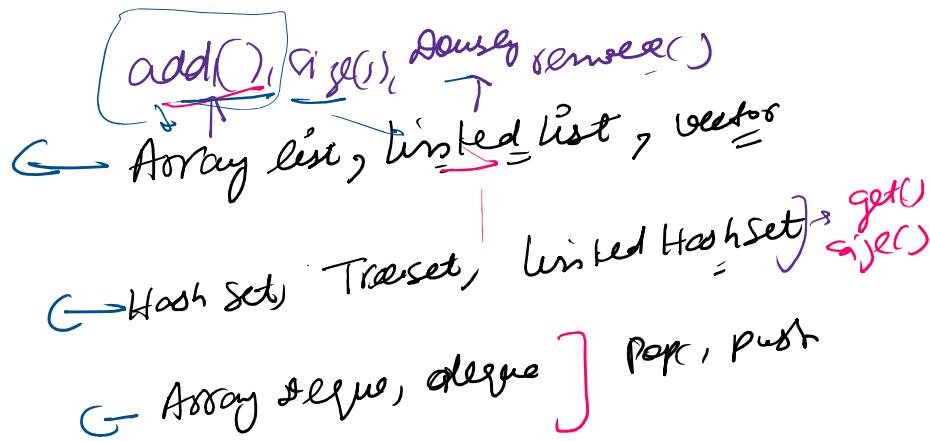 add(), size(), remove()
Array list, linked list, vector
get()
Hash set, Treeset, linked HashSet
size()
Array deque, deque pop, push